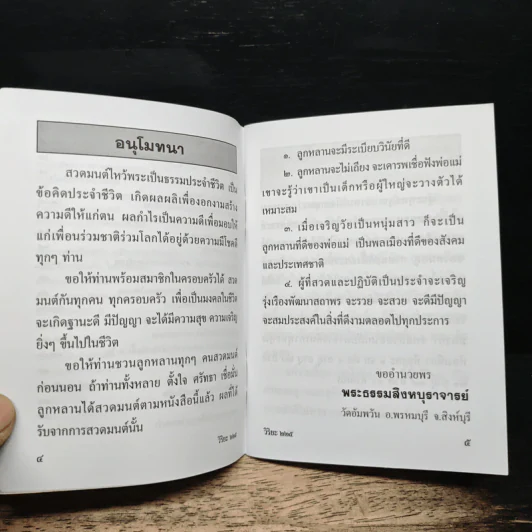 อนุโมทนา
สวดมนต์ไหว้พระเป็นธรรมประจำชีวิต เป็น
ข้อคิดประจำชีวิต เกิดผลผลิเพื่องอกงามสร้าง
ความดีให้แก่ตน ผลกำไรเป็นความดีเพื่อมอบให้
แก่เพื่อนร่วมชาติร่วมโลกได้อยู่ด้วยความมีโชคดี
ทุกๆ ท่าน
ขอให้ท่านพร้อมสมาชิกในครอบครัวได้ สวด
มนต์กันทุกคน ทุกครอบครัว เพื่อเป็นมงคลในชีวิต
จะเกิดฐานะดี มีปัญญา จะได้มีความสุข ความเจริญ
ยิ่งๆ ขึ้นไปในชีวิต
ขอให้ท่านชวนลูกหลานทุกๆ คนสวดมนต์
ก่อนนอน ถ้าท่านทั้งหลาย ตั้งใจ ศรัทธา เชื่อมั่น
ลูกหลานได้สวดมนต์ตามหนังสือนี้แล้ว ผลที่ได้
รับจากการสวดมนต์นั้น
๔
วิริยะ ๒๒๕
๑. ลูกหลานจะมีระเบียบวินัยที่ดี
๒. ลูกหลานจะไม่เถียง จะเคารพเชื่อฟังพ่อแม่
เขาจะรู้ว่าเขาเป็นเด็กหรือผู้ใหญ่จะวางตัวได้
เหมาะสม
๓. เมื่อเจริญวัยเป็นหนุ่มสาว ก็จะเป็น
ลูกหลานที่ดีของพ่อแม่ เป็นพลเมืองที่ดีของสังคม
และประเทศชาติ
๔. ผู้ที่สวดและปฏิบัติเป็นประจำจะเจริญ
รุ่งเรืองพัฒนาสถาพร จะรวย จะสวย จะดีมีปัญญา
จะสมประสงค์ในสิ่งที่ดีงามตลอดไปทุกประการ
ขออำนวยพร
พระธรรมสิงหบุราจารย์
วัดอัมพวัน อ.พรหมบุรี จ.สิงห์บุรี
วิริยะ ๒๒๕
๕